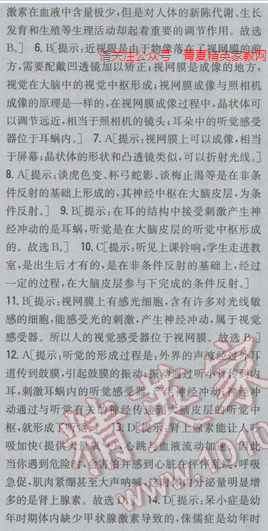 激素在血液中含量极少，但是对人体的新陈代谢、生长
发育和生殖等生理活动却起着重要的调节作用。故选
B。] 6. B[提示：近视眼是由于物像落在了视网膜的前
请关注公众号 青夏精英家教网
方，需要配戴凹透镜加以矫正；视网膜是成像的地方，
视觉在大脑中的视觉中枢形成；视网膜成像与照相机
成像的原理是一样的，在视网膜成像过程中，晶状体可
以调节远近，相当于照相机的镜头；耳朵中的听觉感受
器位于耳蜗内。] 7. A[提示：视网膜上可以成像，相当
于屏幕；晶状体的形状和凸透镜类似，可以折射光线。]
8. A[提示：谈虎色变、杯弓蛇影、谈梅止渴等是在非条
件反射的基础上形成的，其神经中枢在大脑皮层，为条
件反射。] 9. B[提示：在耳的结构中接受刺激产生神
经冲动的是耳蜗，听觉是在大脑皮层的听觉中枢形成
的。故选 B。] 10. C[提示：听见上课铃响，学生走进教
室，是出生后才有的，是在非条件反射的基础上，经过
一定的过程，在大脑皮层参与下完成的条件反射。]
11. B[提示：视网膜上有感光细胞，含有许多对光线敏
感的细胞，能感受光的刺激，产生神经冲动，属于视觉
感受器。所以人的视觉感受器位于视网膜。故选 B。]
12. A[提示：听觉的形成过程是：外界的声波经过外耳
道传到鼓膜，引起鼓膜的振动；振动通过听小骨传到内
耳，刺激耳蜗内的听觉感受器，产生神经冲动；神经冲
动通过与听觉有关的神经传递到大脑皮层的听觉中
枢，就形成了听觉。] 13. D[提示：肾上腺素能让人呼
吸加快(提供大量氧气)，心跳与血液流动加速。因此
当你遇到危险时，会害怕并感到心脏怦怦作跳，呼吸
急促，肌肉紧绷甚至大声呐喊，体内的分泌量明显增
多的是肾上腺素。故选 D。] 14. D[提示：呆小症是幼
年时期体内缺少甲状腺激素导致的，侏儒症是幼年时
精英家
www.1010